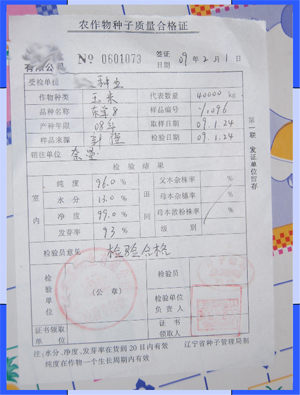 农作物种子质量合格证
No 0601073 签证日期 09年2月1日
有限公司
受检单位 种业
作物种类 玉米 代表数量 40000 kg
品种名称 东单8 样品编号
产种年限 08年 取样日期 09.1.24
样品来源 检验日期 09.1.24
销往单位
第一联 发证单位留存
检验结果
室内 田间
纯度 96.0 % 父本杂株率 %
水分 13.0 % 母本杂株率 %
净度 99.0 % 母本散粉株率 %
发芽率 93 % 级别
检验员意见 检验合格
检验单位 (公章) 检验员
检验单位负责人
证书领取单位 证书领取人
注:水分、净度、发芽率在货到20日内有效
纯度在作物一个生长周期内有效
辽宁省种子管理局制